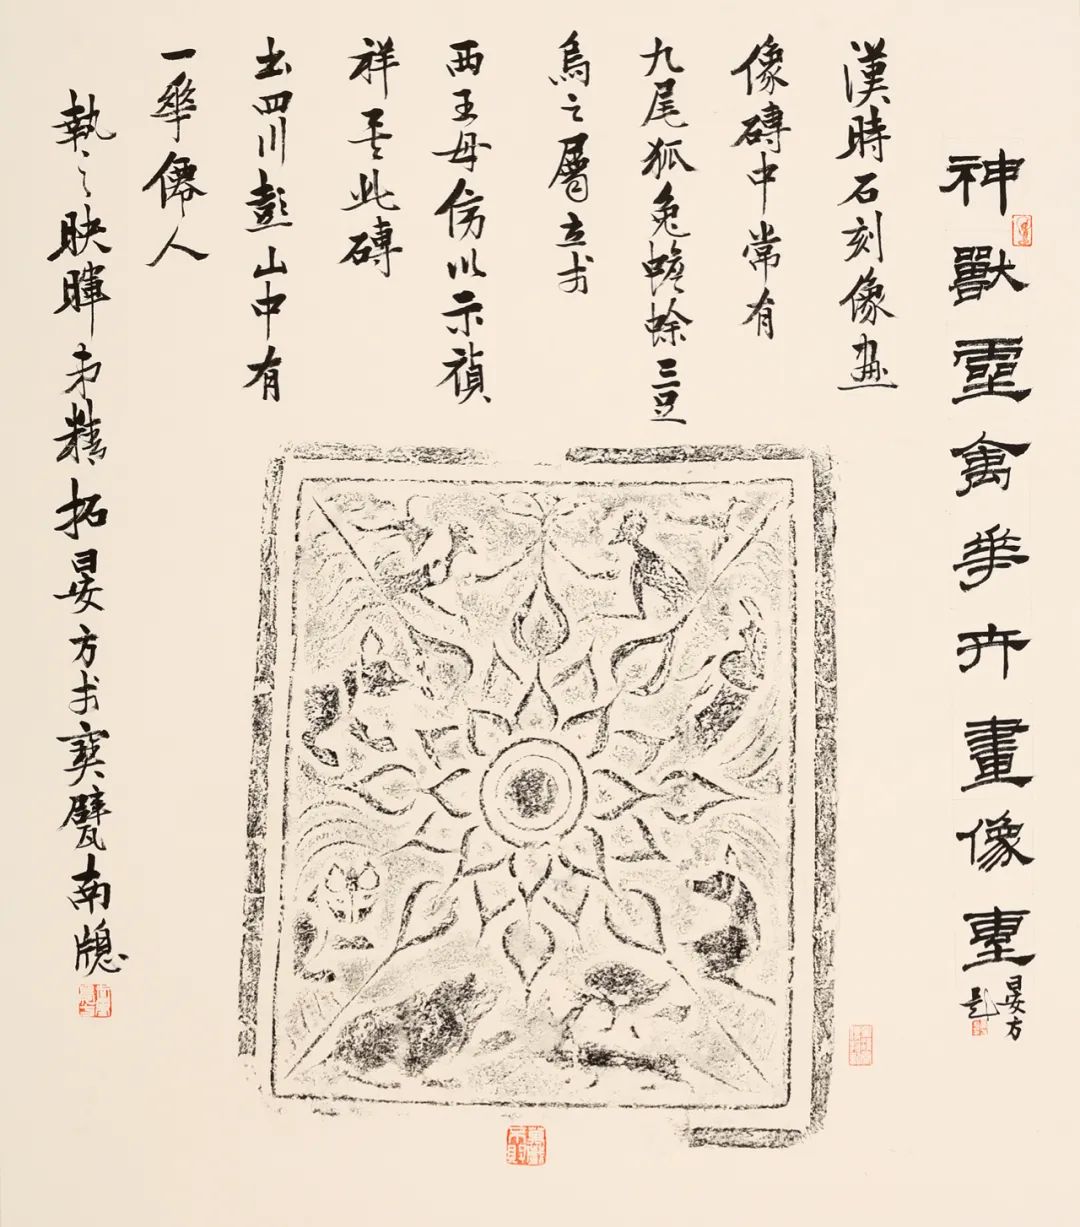 神獸靈禽華卉畫像專
晏方題
漢時石刻像畫
像磚中常有
九尾狐兔蟾蜍三足
烏之屬立於
西王母傍以示禎
祥此磚
出四川彭山中有
一華僊人
執之映暉弟精拓晏方於寶甓南牕